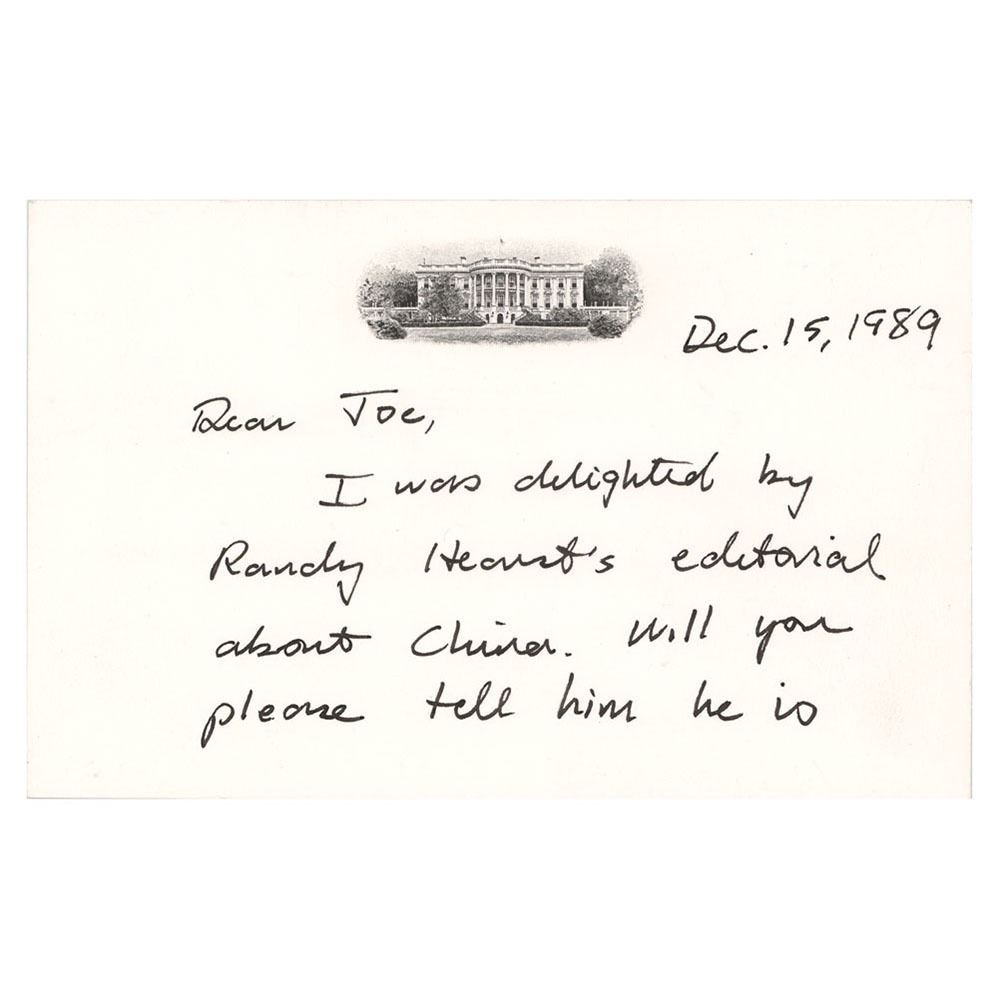 Dec. 15, 1989
Dear Joe,
I was delighted by
Randy Hearst's editorial
about China. Will you
please tell him he is